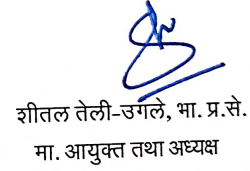 शीतल तेली-उगले, भा. प्र.से.
मा. आयुक्त तथा अध्यक्ष